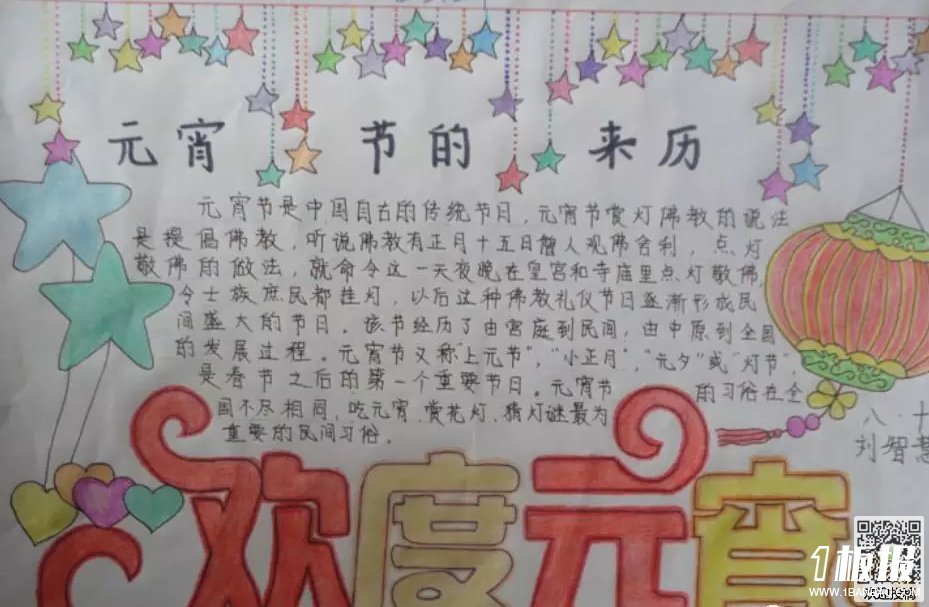 元宵节的来历
元宵节是中国自古的传统节日，元宵节赏灯佛教的说法
是提倡佛教，听说佛教有正月十五日僧人观佛舍利，点灯
敬佛的做法，就命令这一天夜晚在皇宫和寺庙里点灯敬佛，
令士族庶民都挂灯，以后这种佛教礼仪节日逐渐形成民
间盛大的节日。该节经历了由宫庭到民间，由中原到全国
的发展过程。元宵节又称"上元节"，"小正月"，"元夕"或"灯节"，
是春节之后的第一个重要节日。元宵节的习俗在全
国不尽相同，吃元宵、赏花灯、猜灯谜最为
重要的民间习俗。
八·十
刘智慧
欢度元宵
1板报
WWW.1BANBAO.COM